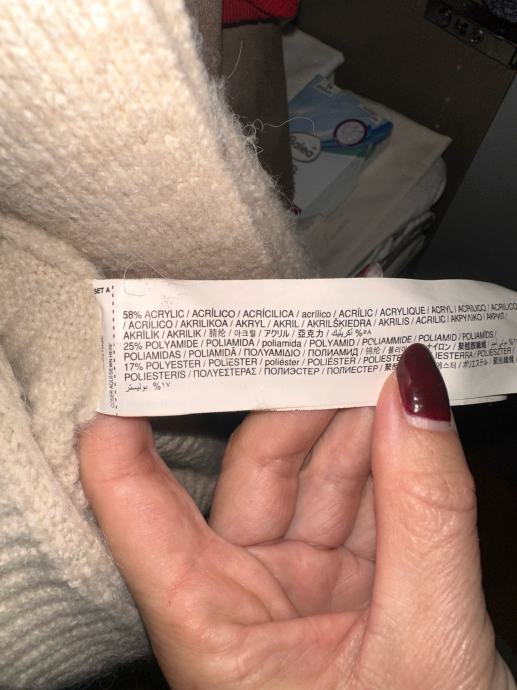 SET A
58% ACRYLIC / ACRÍLICO / ACRÍCILICA / acrílico / ACRÍLIC / ACRYLIQUE / ACRYL / ACRILICO / ACRÍLICO
/ ACRÍLICO / AKRILIKOA / AKRYL / AKRIL / AKRILŠĶIEDRA / AKRILIS / ACRILIC / ΑΚΡΥΛΙΚΟ /
AKRİLİK / AKRILIK / 腈纶 / 아크릴 / アクリル / 亞克力 / أكريليك %٥٨
25% POLYAMIDE / POLIAMIDA / poliamida / POLYAMID / POLIAMMIDE / POLIAMID / POLIAMĪDS /
POLIAMIDAS / POLIAMIDĂ / ΠΟΛΥΑΜΙΔΙΟ / ПОЛИАМИД / 锦纶 / ナイロン / 聚醯胺纖維
17% POLYESTER / POLIÉSTER / poliéster / POLIÈSTER / POLIESTERRA / POLIESZTER /
POLIESTERIS / ΠΟΛΥΕΣΤΕΡΑΣ / ПОЛИЭСТЕР / ПОЛИЕСТЕР / ポリエステル / 聚酯纖維
بوليستر %١٧
Balea